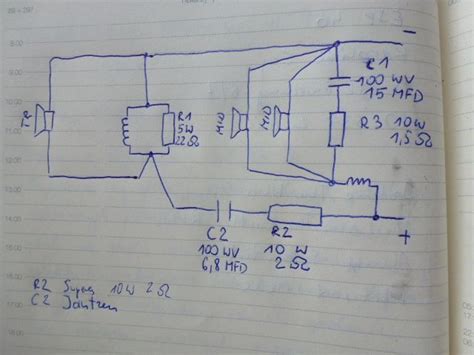 8:00
9:00
10:00
11:00
12:00
13:00
14:00
15:00
16:00
17:00
18:00
-
C1
100 WV
15 MFD
R3 10W
1,5 Ω
MID
MID
R1
5W
22Ω
+
C2
100 WV
6,8 MFD
R2
10 W
2Ω
R2 10W 2Ω
C2 Jantzen